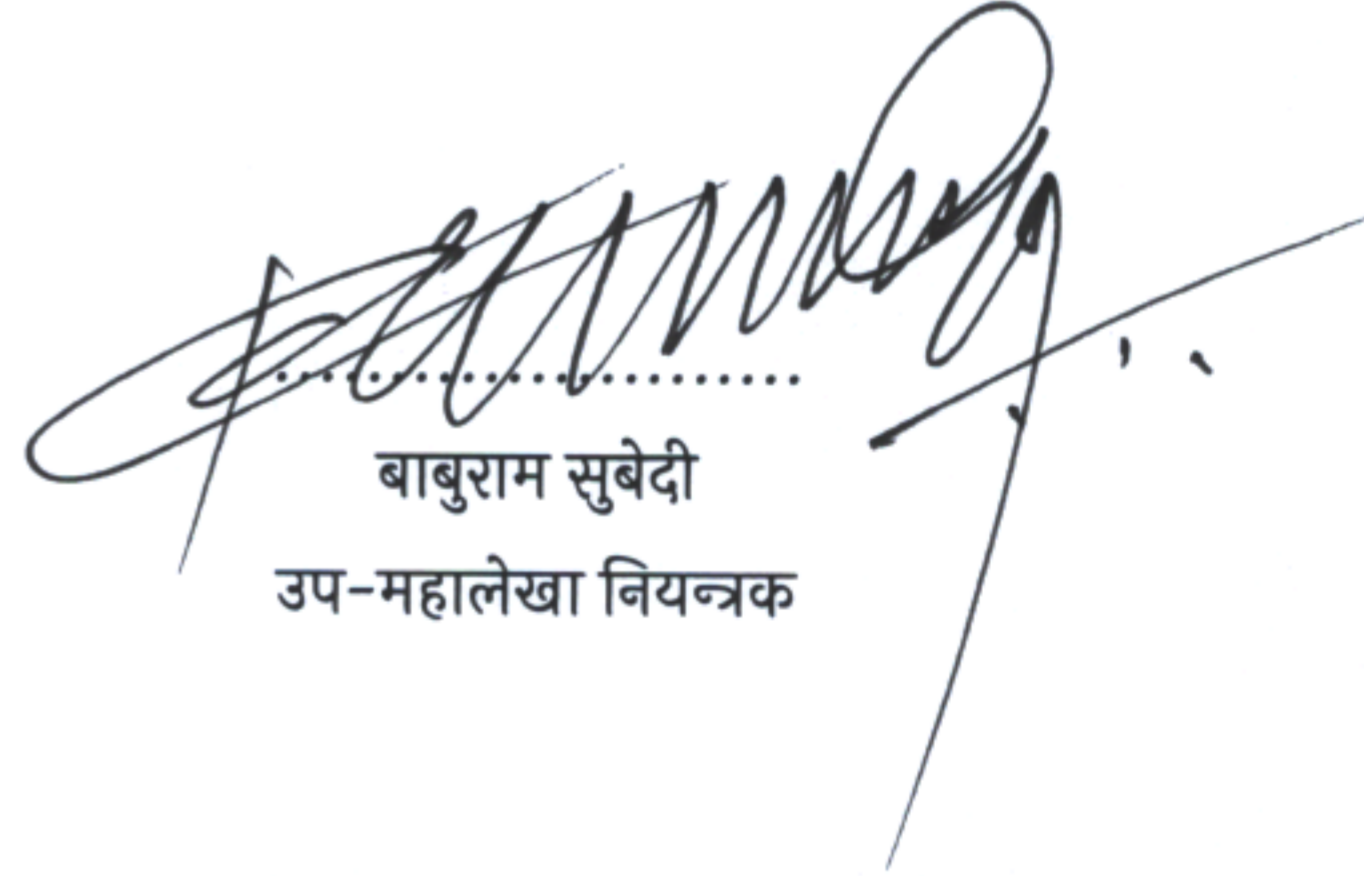 ........................
बाबुराम सुबेदी
उप-महालेखा नियन्त्रक